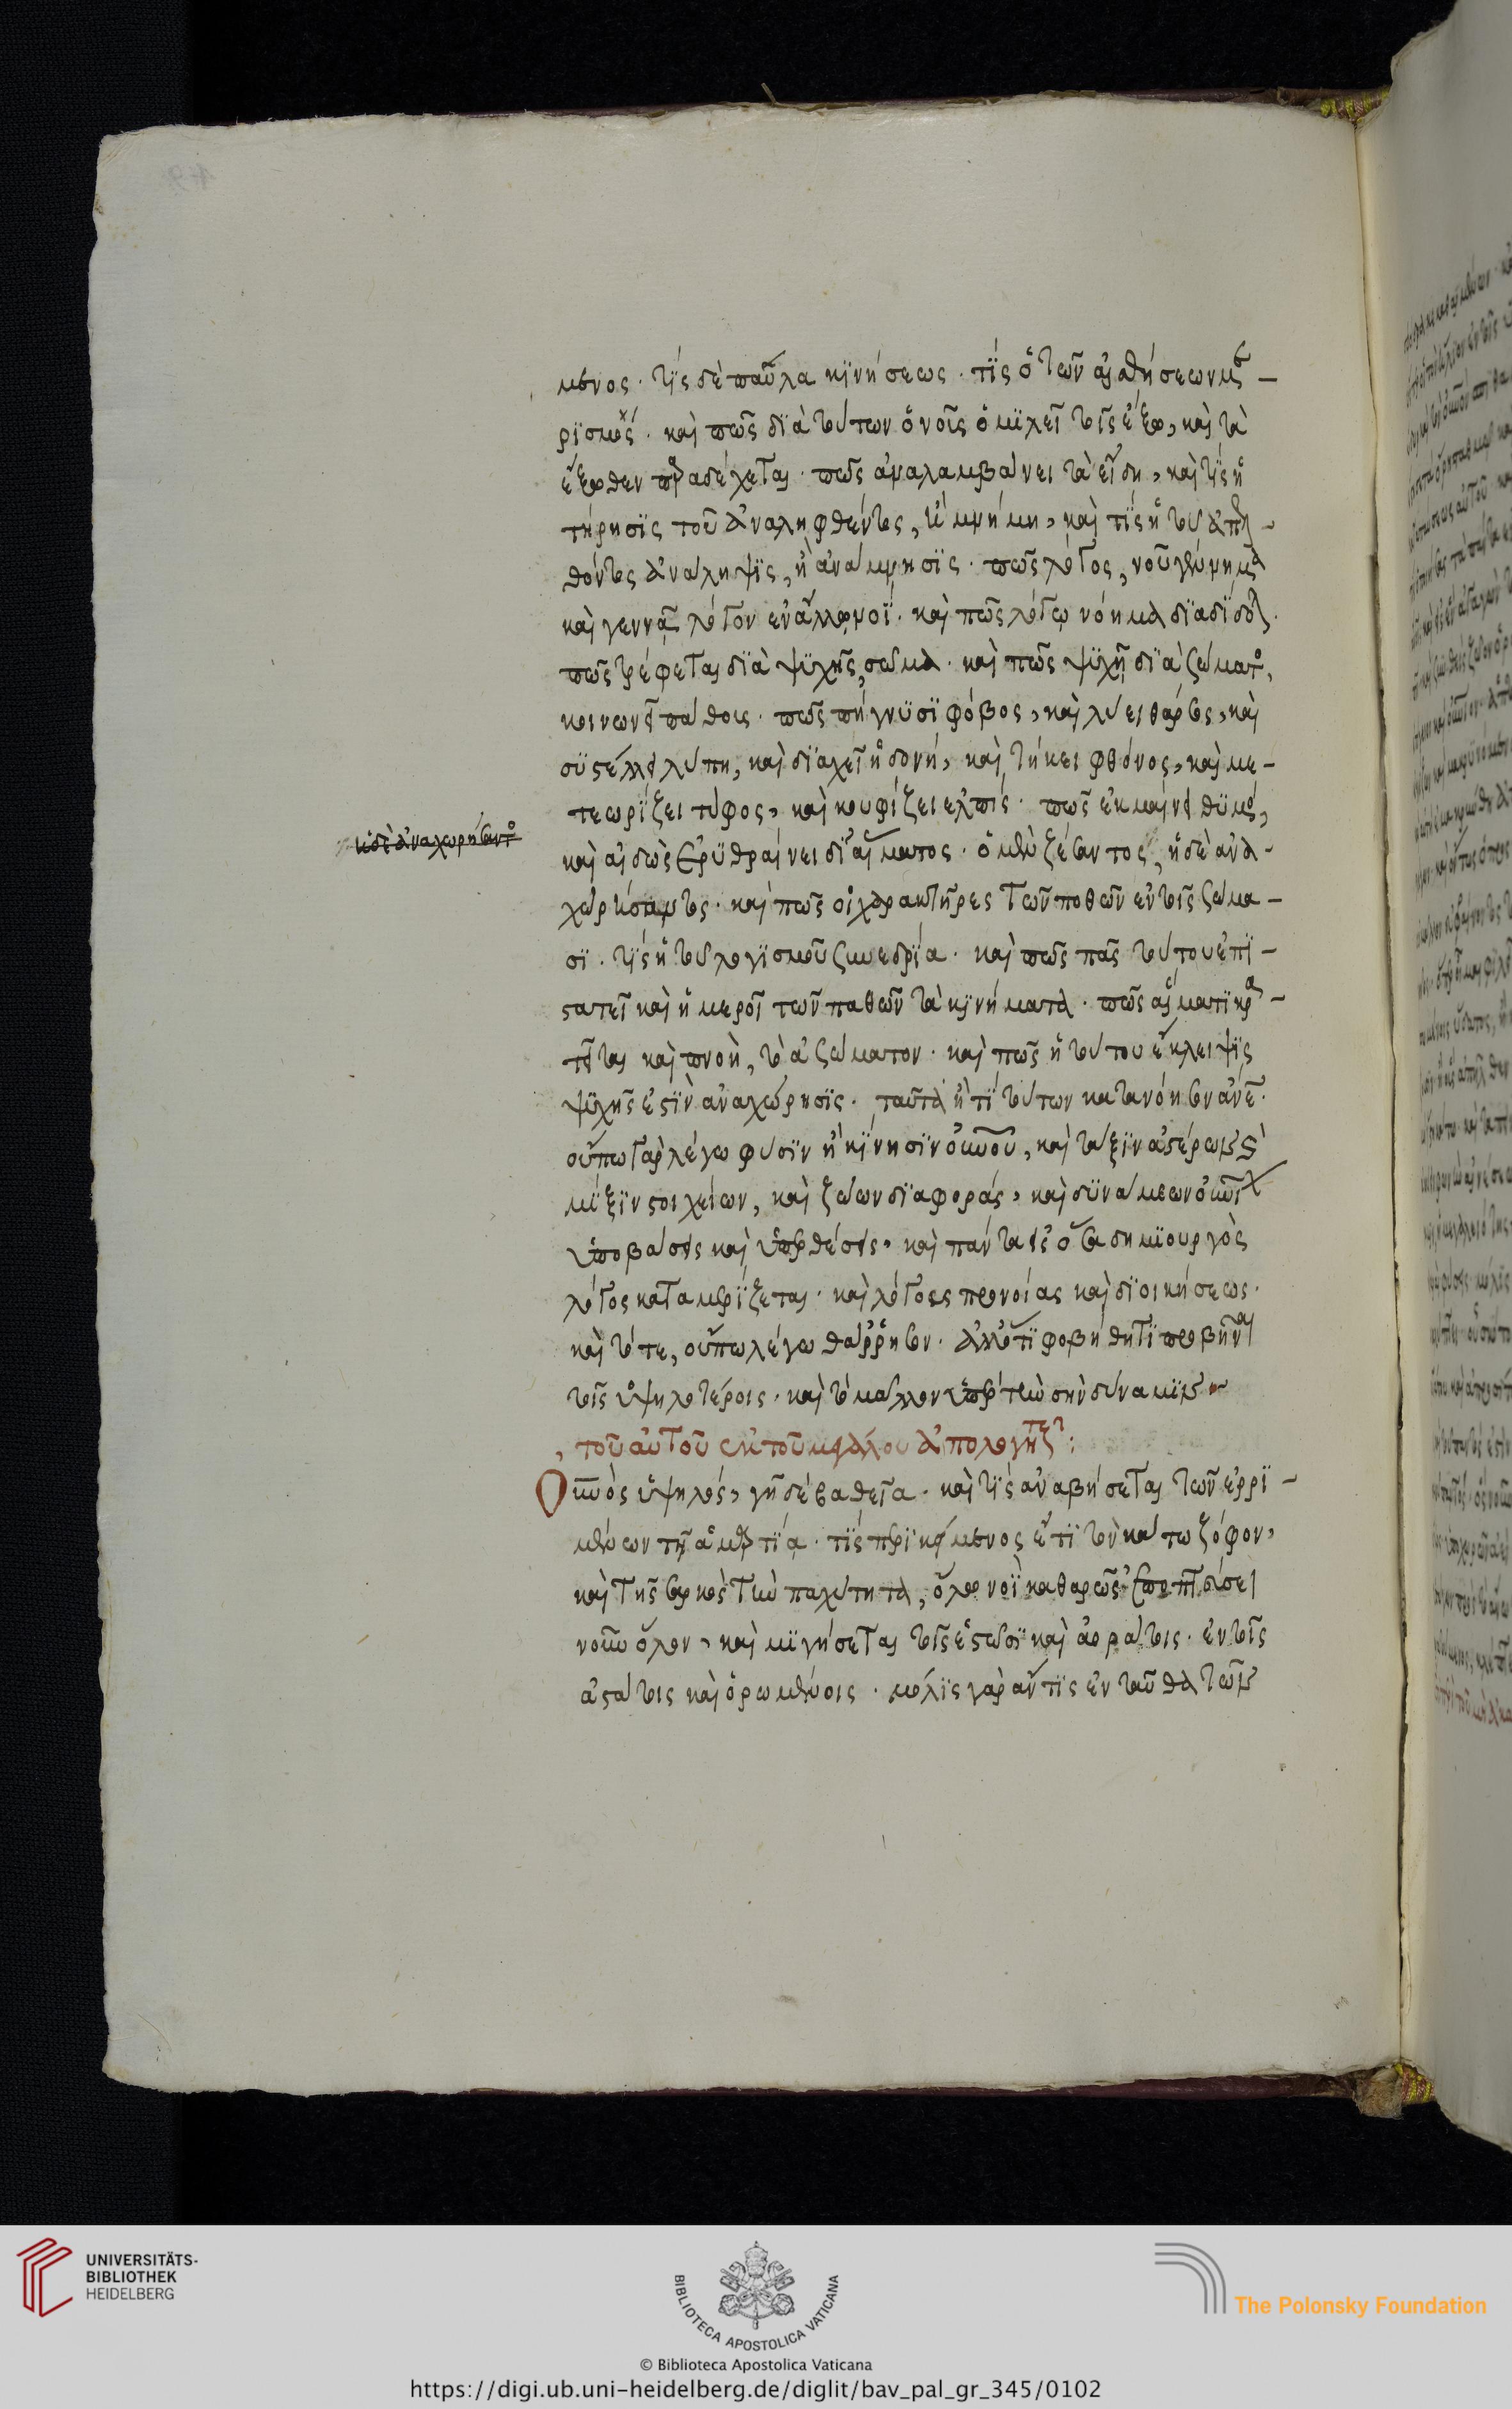 μενος· τίς δὲ παῦλα κινήσεως· τίς ὁ τῶν αἰσθήσεων με-
ρισμός· καὶ πῶς διὰ τούτων ὁ νοῦς ὁμιλεῖ τοῖς ἔξω, καὶ τὰ
ἔξωθεν προσδέχεται· πῶς ἀναλαμβάνει τὰ εἴδη, καὶ τίς ἡ
τήρησις τοῦ ἀναληφθέντος, ἡ μνήμη, καὶ τίς ἡ τοῦ ἀπελ-
θόντος ἀνάληψις, ἡ ἀνάμνησις· πῶς λόγος, νοῦ γέννημα
καὶ γεννᾷ λόγον ἐν ἄλλῳ νοΐ· καὶ πῶς λόγῳ νόημα διαδίδοται·
πῶς τρέφεται διὰ ψυχῆς, σῶμα· καὶ πῶς ψυχὴ διὰ σώματος,
κοινωνεῖ πάθους· πῶς πήγνυσι φόβος, καὶ λύει θάρσος, καὶ
συστέλλει λύπη, καὶ διαχεῖ ἡδονή, καὶ τήκει φθόνος, καὶ με-
τεωρίζει τύφος, καὶ κουφίζει ἐλπίς· πῶς ἐκμαίνει θυμός,
καὶ αἰδὼς ἐρυθραίνει δι' αἵματος· ὁ μὲν ζέσαντος, ἡ δὲ ἀνα-
χωρήσαντος· καὶ πῶς οἱ χαρακτῆρες τῶν παθῶν ἐν τοῖς σώμα-
σι· τίς ἡ τοῦ λογισμοῦ συνεδρία· καὶ πῶς πᾶς τούτου ἐπι-
στατεῖ καὶ ἡμεροῖ τῶν παθῶν τὰ κινήματα· πῶς αἵματι κρα-
τεῖται καὶ πνοῇ, τὸ ἀσώματον· καὶ πῶς ἡ τούτου ἔκλειψις
ψυχῆς ἐστὶν ἀναχώρησις· ταῦτα ἤ τι τούτων κατανόησον ἄνε·
οὔπω γὰρ λέγω φύσιν ἢ κίνησιν οὐνου, καὶ τάξιν ἀστέρων καὶ
μίξιν στοιχείων, καὶ ζώων διαφοράς, καὶ δυνάμεων οὐνίων
ὑποβάσεις καὶ ὑπερθέσεις· καὶ πάντα εἰς ὅσα δημιουργὸς
λόγος καταμερίζεται· καὶ λόγους προνοίας καὶ διοικήσεως·
καὶ τότε, οὔπω λέγω θάρρησον· ἀλλ' ἔτι φοβήθητι προβῆναι
τοῖς ὑψηλοτέροις· καὶ τὸ μᾶλλον ὑπὲρ τὴν σὴν δύναμιν
τοῦ αὐτοῦ ἐκ τοῦ μεγάλου ἀπολογητικοῦ:
Οὐνὸς ὑψηλός, γῆ δὲ βαθεῖα· καὶ τίς ἀναβήσεται τῶν ἐρρι-
μένων τῇ ἁμαρτίᾳ· τίς περικείμενος ἔτι τὸν κάτω ζόφον,
καὶ τῆς σαρκὸς τὴν παχύτητα, ὅλῳ νοῒ καθαρῶς ἐποπτεύσει
νοῦν ὅλον, καὶ μιγήσεται τοῖς ἑστῶσι καὶ ἀοράτοις· ἐν τοῖς
ἀστάτοις καὶ ὁρωμένοις· μόλις γὰρ ἄν τις ἐνταῦθα τῶν
ἡ δὲ ἀναχωρήσαντος
UNIVERSITÄTS-
BIBLIOTHEK
HEIDELBERG
BIBLIOTECA APOSTOLICA VATICANA
The Polonsky Foundation
© Biblioteca Apostolica Vaticana
https://digi.ub.uni-heidelberg.de/diglit/bav_pal_gr_345/0102